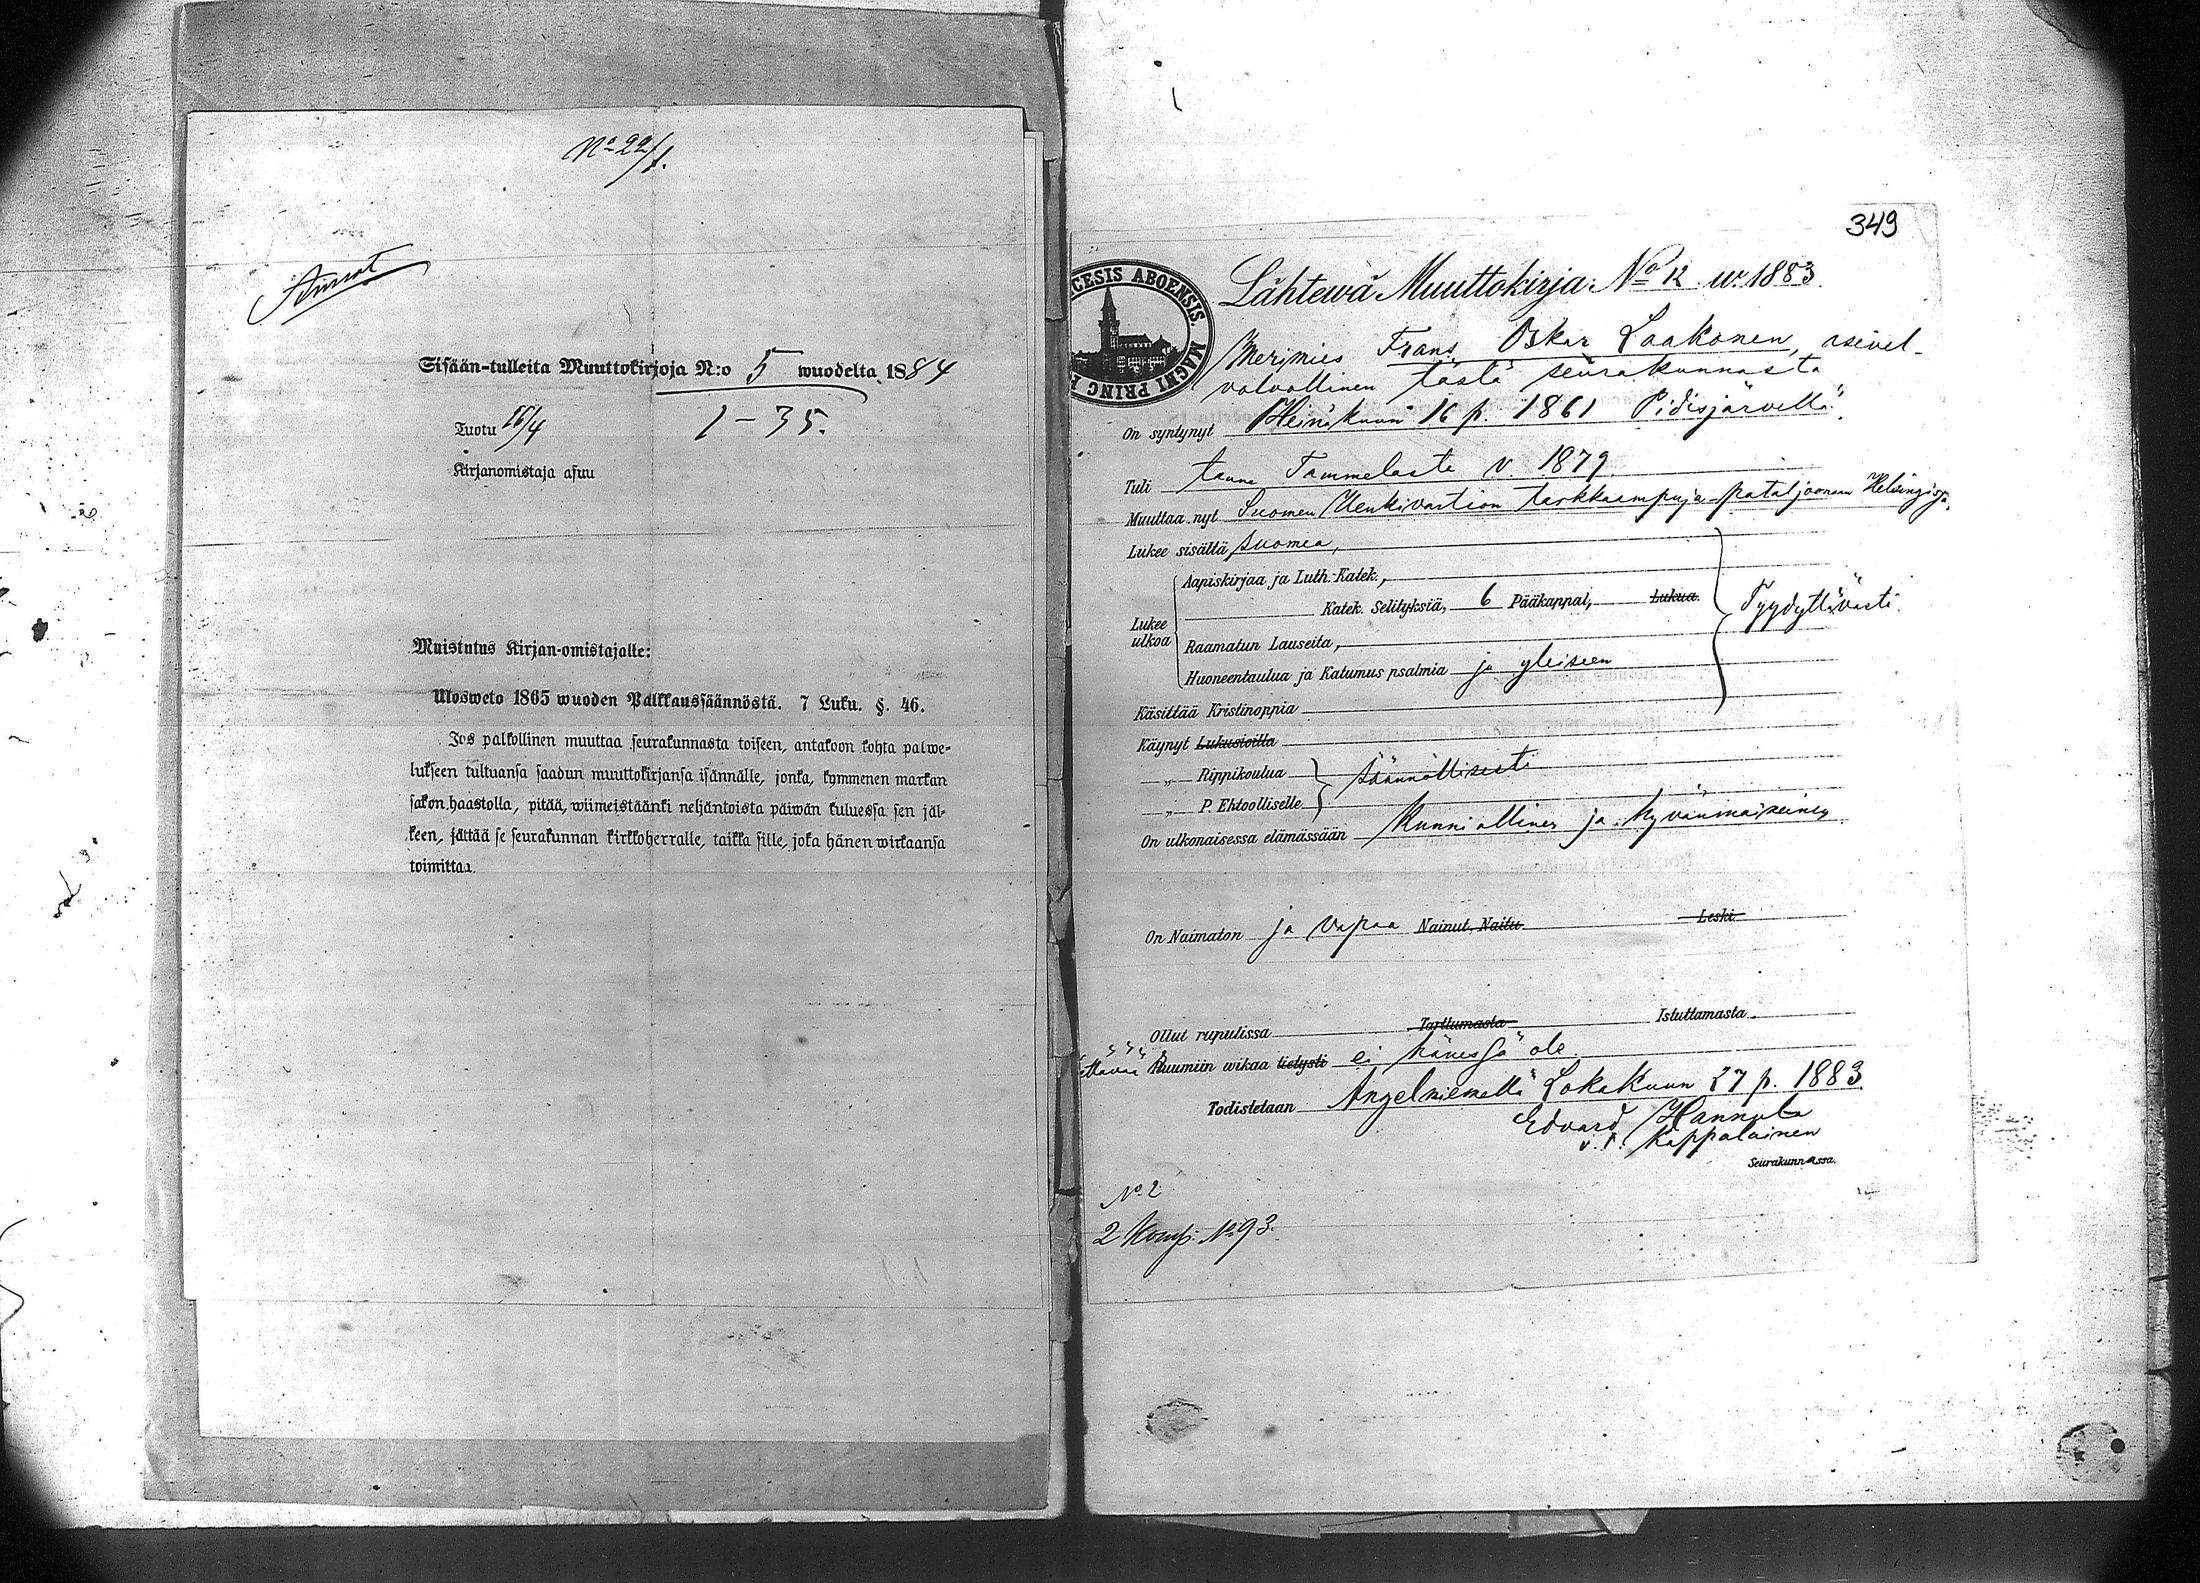 No 22/1.
Sisään-tulleita Muuttokirjoja N:o 5 wuodelta 1884
Tuotu 16/4 1-35.
Kirjanomistaja asuu
Muistutus Kirjan-omistajalle:
Ulosweto 1865 wuoden Palkkaussäännöstä. 7 Luku. §. 46.
Jos palkollinen muuttaa seurakunnasta toiseen, antakoon kohta palwe-
lukseen tultuansa saadun muuttokirjansa isännälle, jonka, kymmenen markan
sakon haastolla, pitää, wiimeistäänki neljäntoista päiwän kuluessa sen jäl-
keen, jättää se seurakunnan kirkkoherralle, taikka sille, joka hänen wirkaansa
toimittaa.
349
CESIS ABOENSIS. MAGNI PRINC
Lähtewä Muuttokirja No 12 w. 1883.
Merimies Frans Oskar Laakonen, asevel-
volvollinen tästä seurakunnasta
On syntynyt Heinäkuun 16 p. 1861 Pidisjärvellä.
Tuli tänne Tammelasta v. 1879.
Muuttaa nyt Suomen Henkivartion tarkkaampuja-pataljoonaan Helsingissä.
Lukee sisältä suomea,
Aapiskirjaa ja Luth. Katek.,
Katek. Selityksiä, 6 Pääkappal, Lukua.
Lukee ulkoa
Tyydyttävästi.
Raamatun Lauseita,
Huoneentaulua ja Katumus psalmia ja yleiseen
Käsittää Kristinoppia
Käynyt Lukusioilla
„ Rippikoulua säännöllisesti
„ P. Ehtoolliselle
On ulkonaisessa elämässään Kunniallinen ja hyvänmaineinen
On Naimaton ja vapaa Nainut, Naitu. Leski.
Ollut rupulissa Tarttumasta Istuttamasta.
Ruumiin wikaa tietysti ei hänessä ole.
Todistetaan Angelniemellä Lokakuun 27 p. 1883.
Edvard Hannula
v. t. Kappalainen
Seurakunnassa.
No 2
2 Komp. No 93.